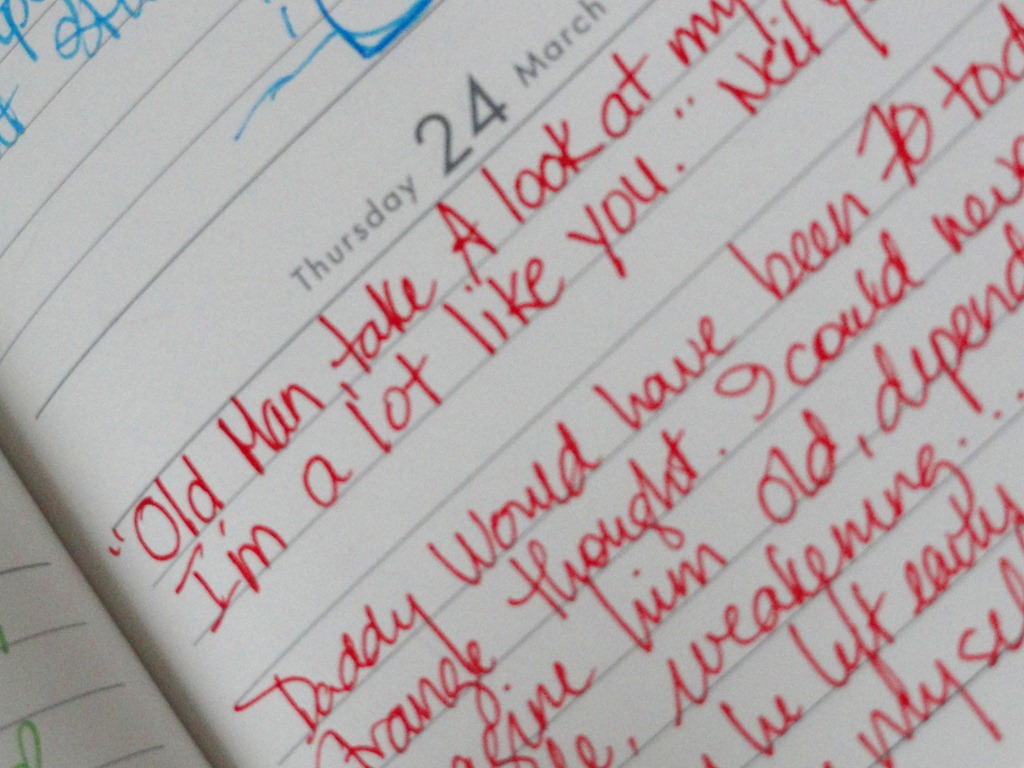 Thursday 24 March
"Old Man, take A look at my
I'm a lot like you." Neil
Daddy Would have been 70
strange thought. I could
him old,
weakening...
he left early